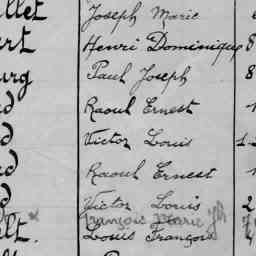 llet Joseph Marie
ert Henri Dominique 8
urg Paul Joseph 8
d Raoul Ernest 1
d Victor Louis 1
d Raoul Ernest 1
d Victor Louis 2
François Marie
lt. Louis François